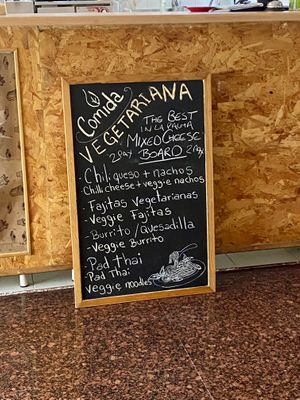 Comida
VEGETARIANA
THE BEST
IN LA PALMA
MIXED CHEESE
BOARD
- Chili, queso + nachos
Chilli cheese + veggie nachos
- Fajitas Vegetarianas
Veggie Fajitas
- Burrito/Quesadilla
- Veggie Burrito
- Pad Thai
Pad Thai
Veggie noodles